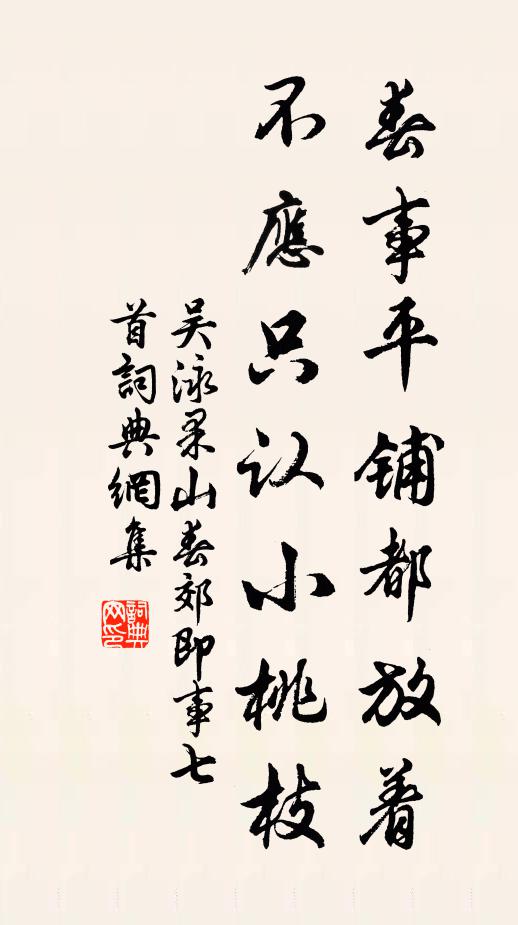 春事平鋪都放着
不應只认小桃枝
吴泳果山春郊即事七
首詞典網集
詞典
网印